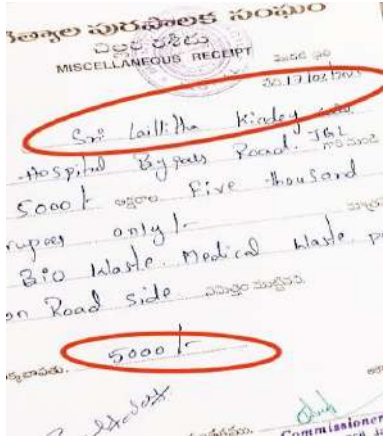 త్యాల పురపాలక సంఘం
చిల్లర రశీదు
MISCELLANEOUS RECEIPT
17/02/202
Sri Laillitha Kindey
Hospital Bypass Road. JGL
5000/- అక్షరాల Five thousand
rupees only/-
Bio Waste. Medical Waste
on Road side
5000/-
Commissioner